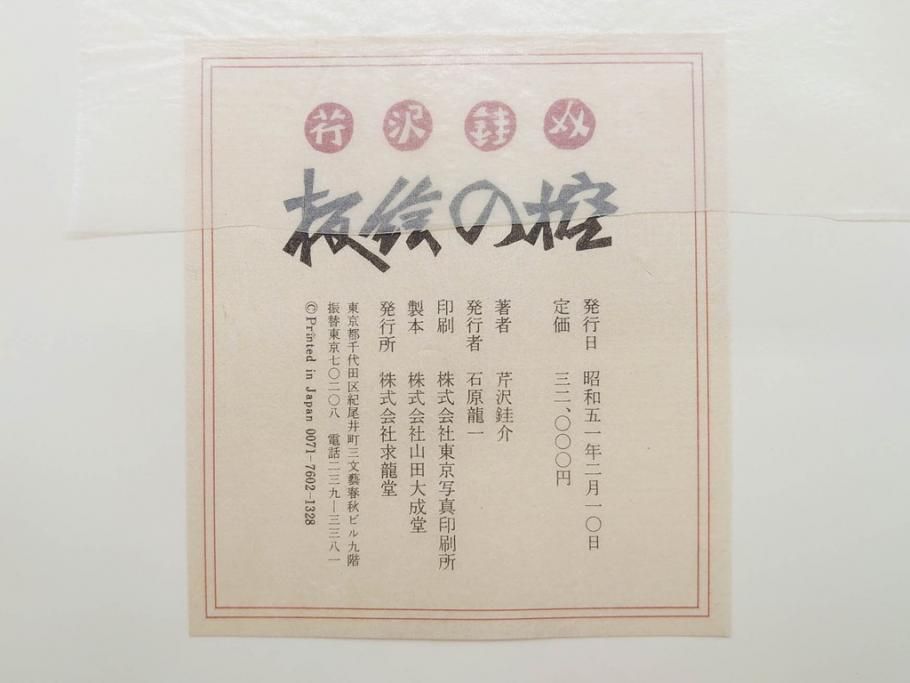 芹沢銈介
板絵の控
発行日 昭和五一年二月一〇日
定価 三二、〇〇〇円
著者 芹沢銈介
発行者 石原龍一
印刷 株式会社東京写真印刷所
製本 株式会社山田大成堂
発行所 株式会社求龍堂
東京都千代田区紀尾井町三文藝春秋ビル九階
振替東京七〇二〇八 電話二三九―三三八一
©Printed in Japan 0071-7602-1328